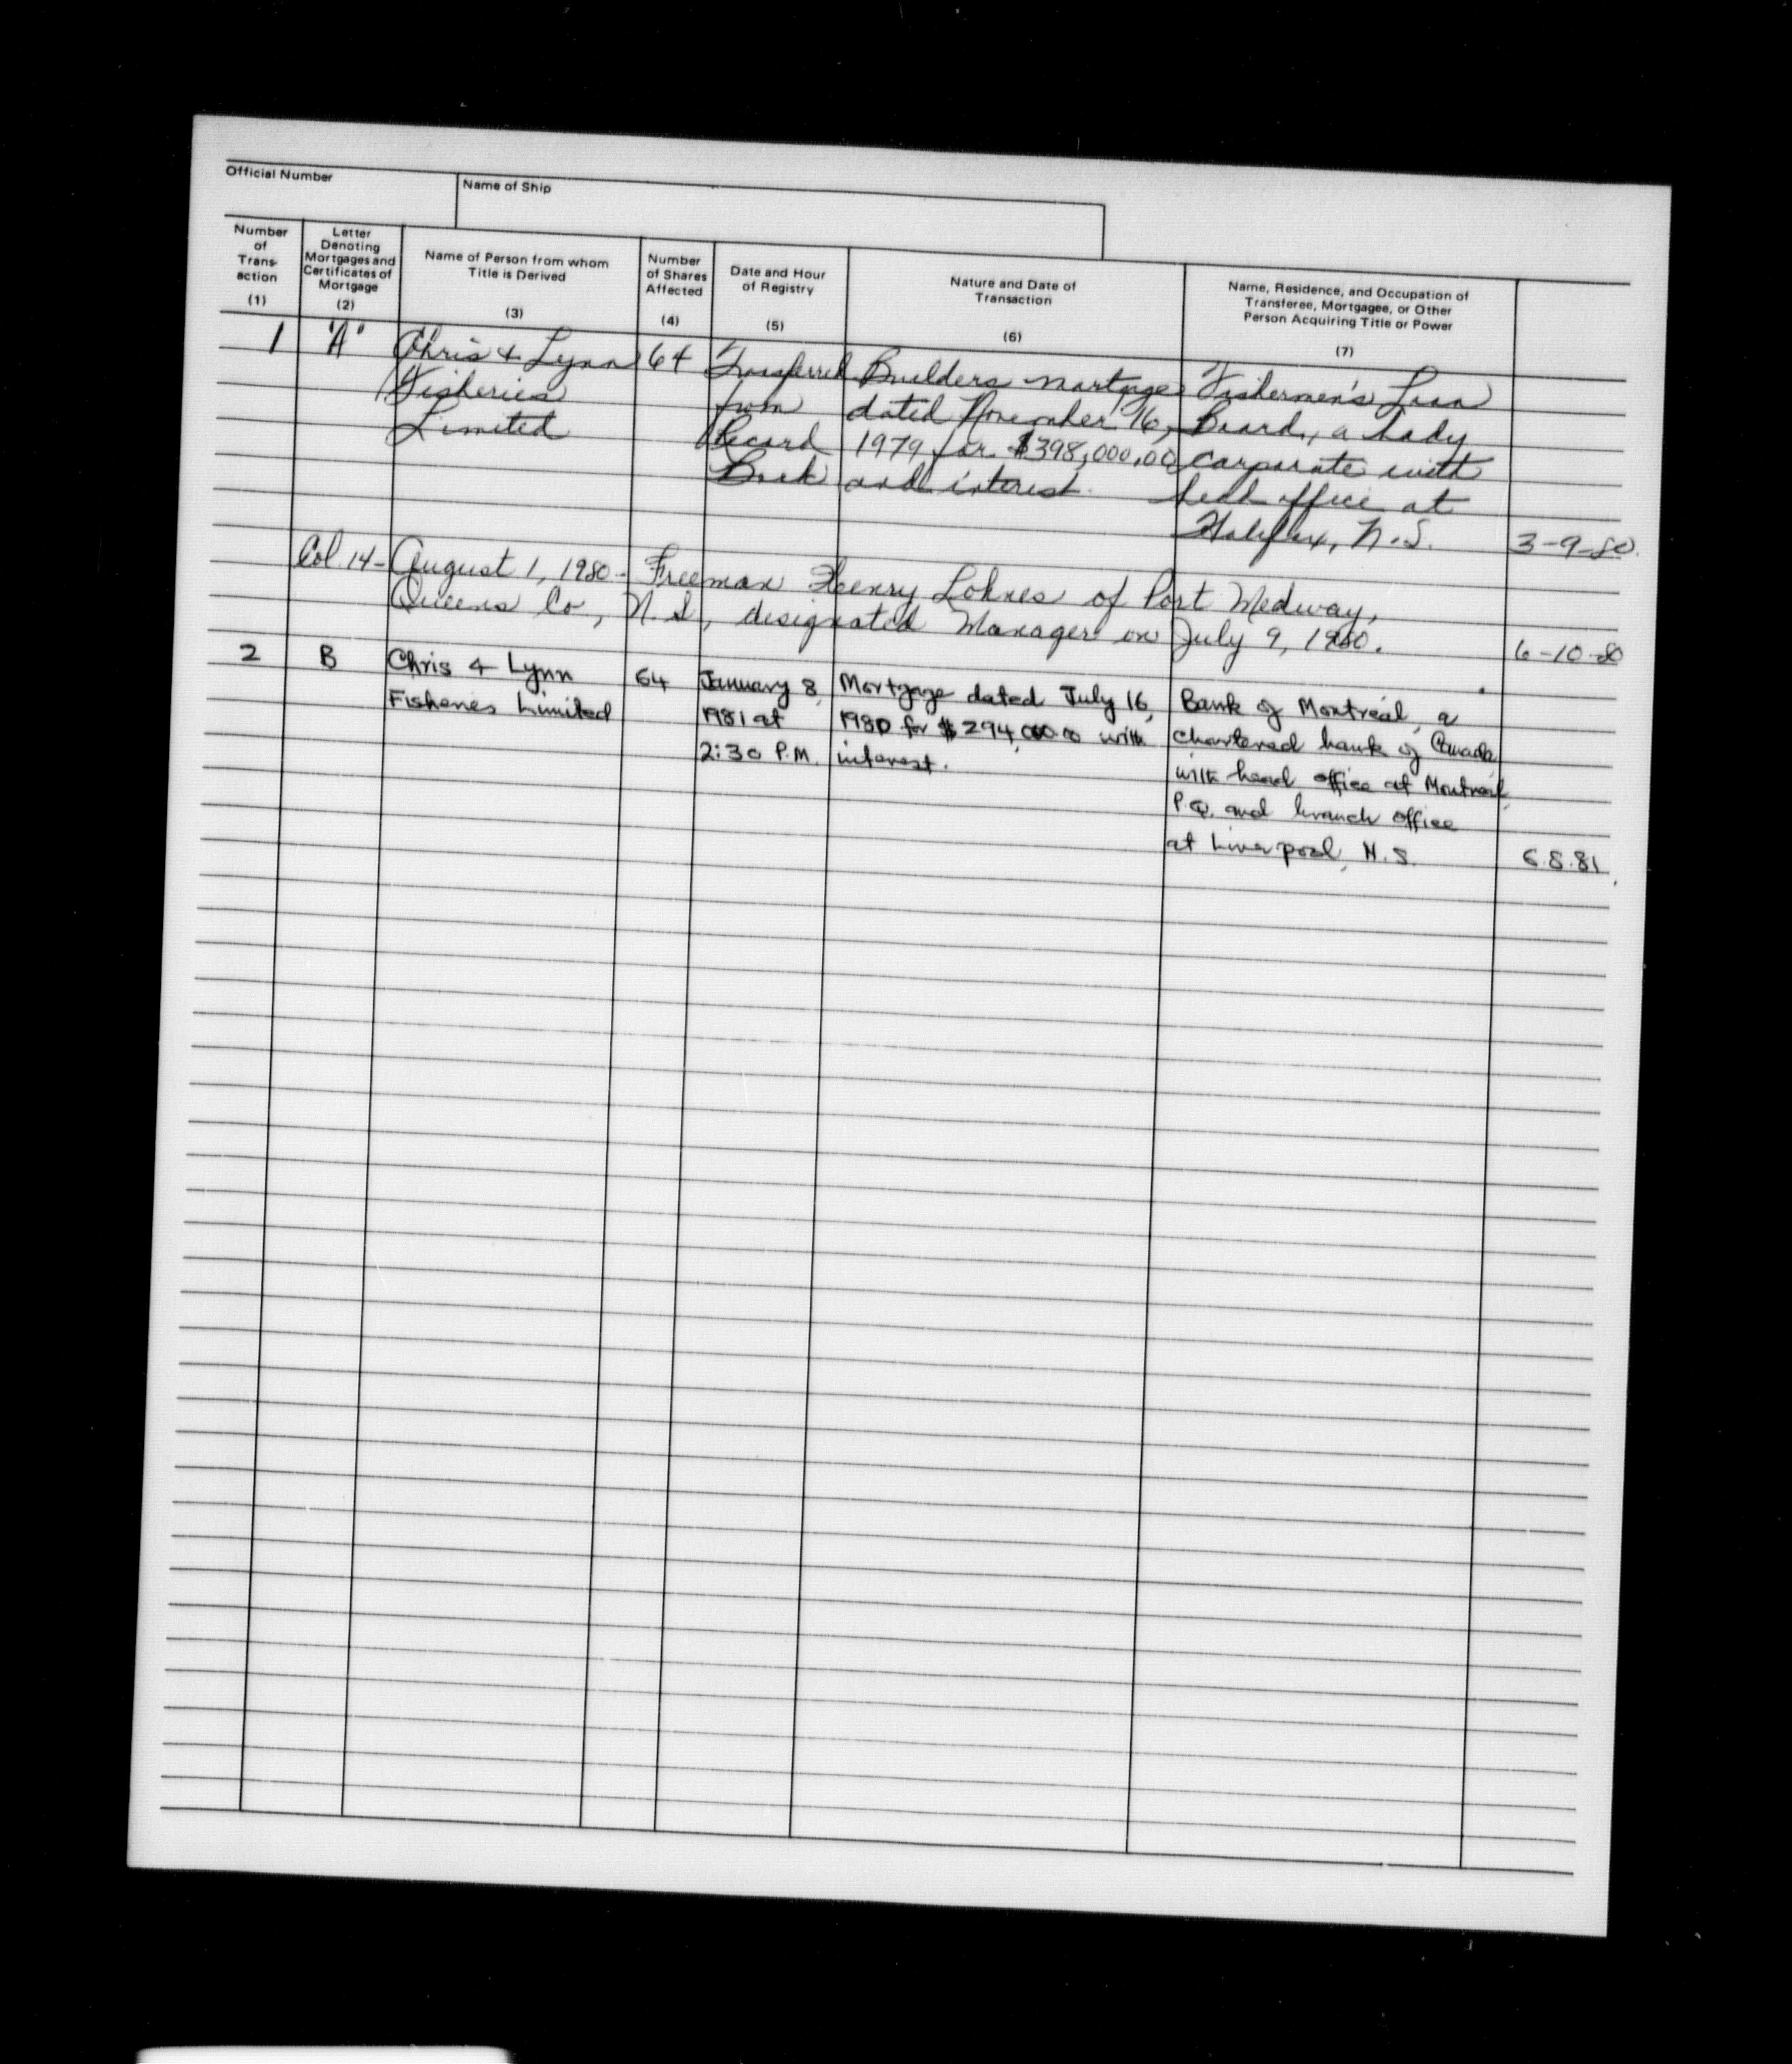 Official Number
Name of Ship
Number of Trans- action (1)
Letter Denoting Mortgages and Certificates of Mortgage (2)
Name of Person from whom Title is Derived (3)
Number of Shares Affected (4)
Date and Hour of Registry (5)
Nature and Date of Transaction (6)
Name, Residence, and Occupation of Transferee, Mortgagee, or Other Person Acquiring Title or Power (7)
1 "A" Chris & Lynn 64 Transferred Builders Mortgage Fishermen's Loan
Fisheries from dated November 16, Board, a body
Limited Record 1979 for $398,000.00 corporate with
Book and interest. head office at
Halifax, N.S. 3-9-80.
Col. 14- August 1, 1980- Freeman Henry Lohnes of Port Medway,
Queens Co., N.S., designated Manager on July 9, 1980. 6-10-80
2 B Chris & Lynn 64 January 8, Mortgage dated July 16, Bank of Montreal, a
Fisheries Limited 1981 at 1980 for $294,000.00 with chartered bank of Canada
2:30 P.M. interest. with head office at Montreal,
P.Q. and branch office
at Liverpool, N.S. 6.8.81